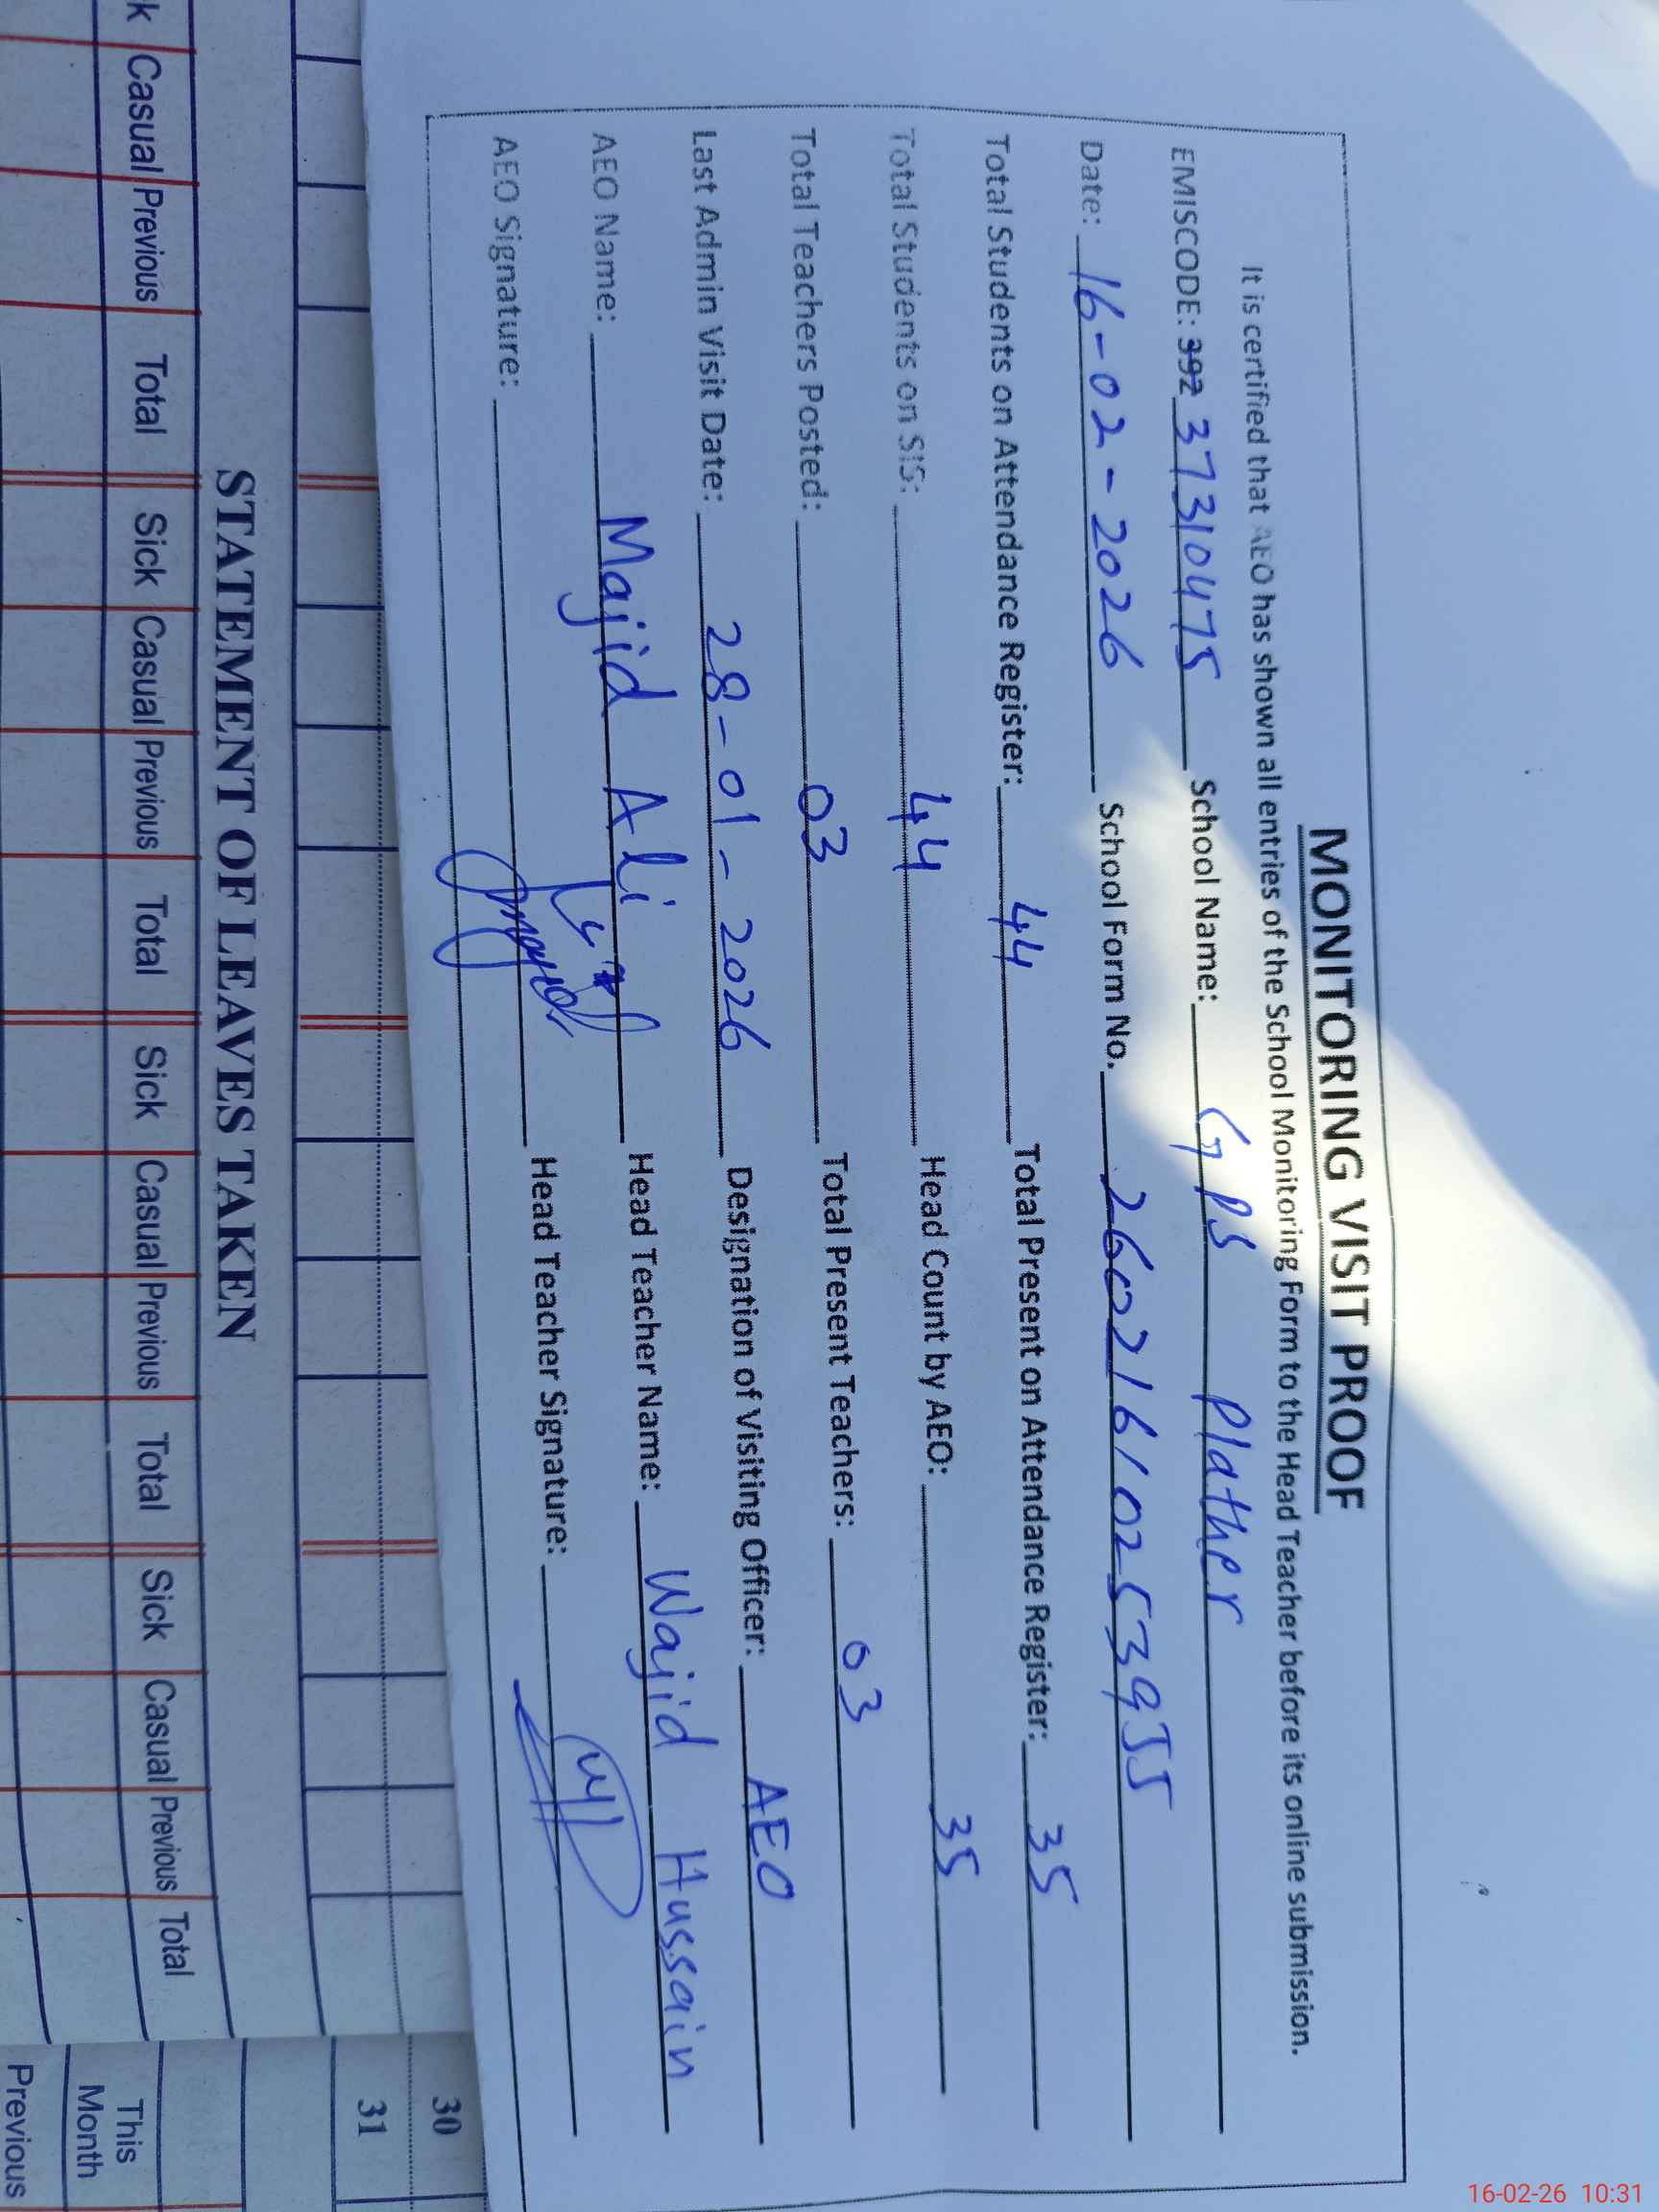 MONITORING VISIT PROOF
It is certified that AEO has shown all entries of the School Monitoring Form to the Head Teacher before its online submission.
EMISCODE: 392 37310475 School Name: GPS Plather
Date: 16-02-2026 School Form No. 260216102539JJ
Total Students on Attendance Register: 44 Total Present on Attendance Register: 35
Total Students on SIS: 44 Head Count by AEO: 35
Total Teachers Posted: 03 Total Present Teachers: 03
Last Admin Visit Date: 28-01-2026 Designation of Visiting Officer: AEO
AEO Name: Majid Ali Head Teacher Name: Wajid Hussain
AEO Signature: Head Teacher Signature:
30
31
STATEMENT OF LEAVES TAKEN
k Casual Previous Total Sick Casual Previous Total Sick Casual Previous Total Sick Casual Previous Total
This Month
Previous
16-02-26 10:31